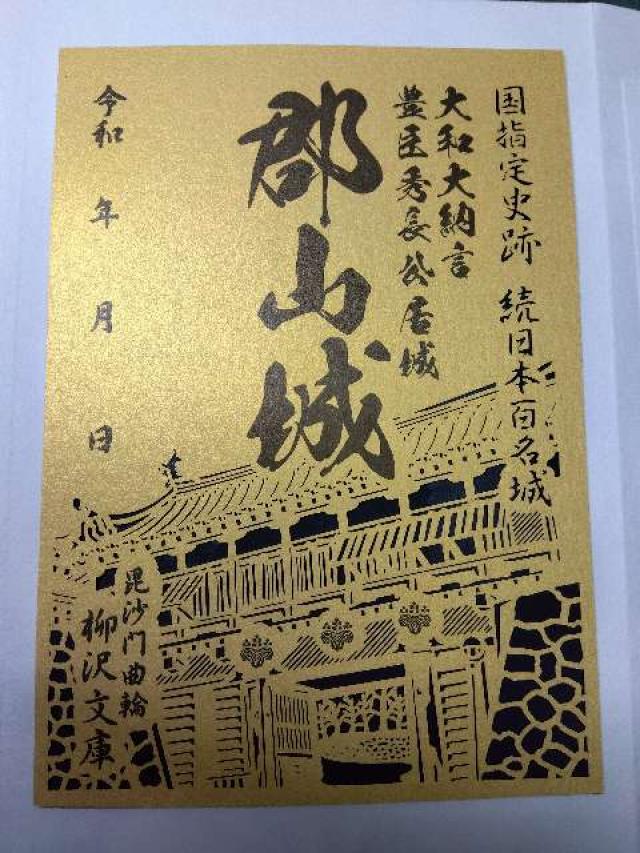 国指定史跡 続日本百名城
大和大納言
豊臣秀長公居城
郡山城
令和 年 月 日
毘沙門曲輪
柳沢文庫